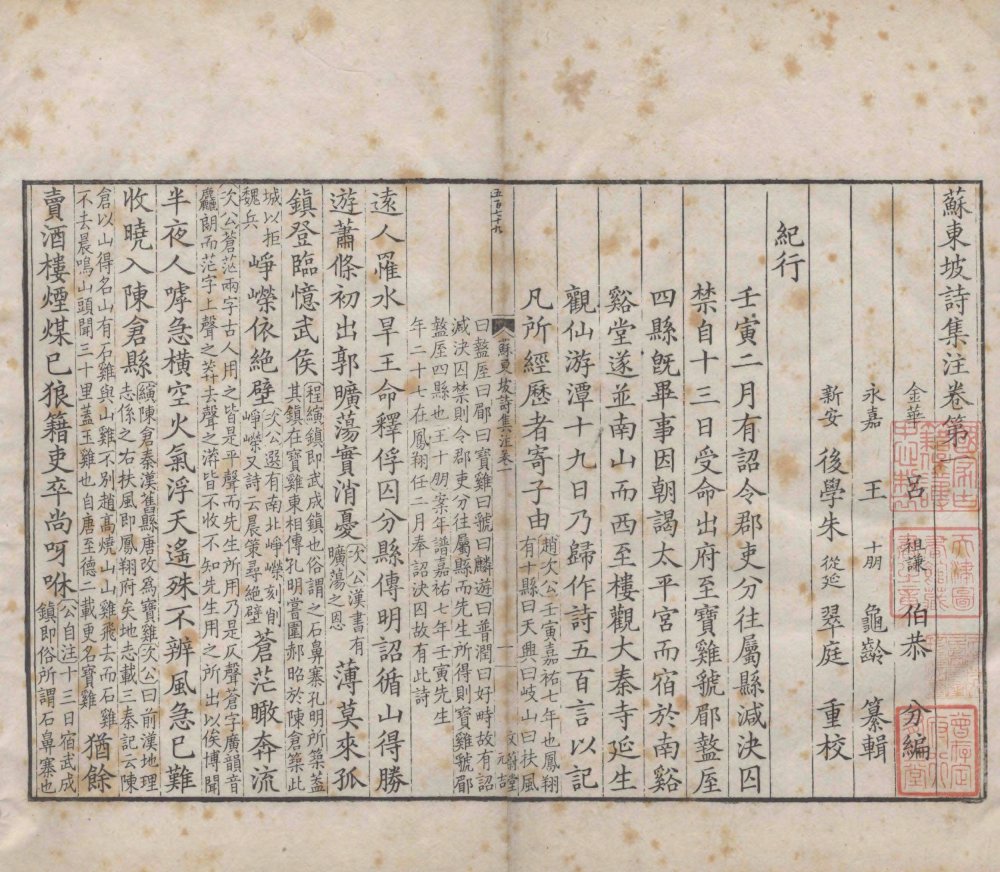 蘇東坡詩集注卷第
金華 呂 祖謙 伯恭 分編
永嘉 王 十朋 龜齡 纂輯
新安 後學朱 從延 翠庭 重校
紀行
壬寅二月有詔令郡吏分往屬縣減決囚
禁自十三日受命出府至寶雞虢郿盩厔
四縣旣畢事因朝謁太平宮而宿於南谿
谿堂遂並南山而西至樓觀大秦寺延生
觀仙游潭十九日乃歸作詩五百言以記
凡所經歷者寄子由
趙次公壬寅嘉祐七年也鳳翔
有十縣曰天興曰岐山曰扶風
曰盩厔曰郿曰寶雞曰虢曰麟遊曰普潤曰好畤故有詔
減決囚禁則令郡吏分往屬縣而先生所得則寶雞虢郿
盩厔四縣也王十朋案年譜嘉祐七年壬寅先生
年二十七在鳳翔任二月奉詔決囚故有此詩
五百七十九
蘇東坡詩集注卷一
一
文蔚堂
遠人罹水旱王命釋俘囚分縣傳明詔循山得勝
遊蕭條初出郭曠蕩實消憂
次公漢書有
曠蕩之恩
薄莫來孤
鎮登臨憶武侯
程縯鎮即武成鎮也俗謂之石鼻寨孔明所築蓋
其鎮在寶雞東相傳孔明嘗圍郝昭於陳倉築此
城以拒
魏兵
崢嶸依絕壁
次公選有南北崢嶸刻削
崢嶸又詩云晨策尋絕壁
蒼茫瞰奔流
次公蒼茫兩字古人用之皆是平聲而先生所用乃是仄聲蒼字廣韻音
麤朗而茫字上聲之莽去聲之漭皆不收不知先生用之所出以俟博聞
半夜人嘑急橫空火氣浮天遙殊不辨風急已難
收曉入陳倉縣
縯陳倉秦漢舊縣唐改為寶雞次公曰前漢地理
志係之右扶風即鳳翔府矣地志載三秦記云陳
倉以山得名山有石雞與山雞不別趙高燒山山雞飛去而石雞
不去晨鳴山頭聞三十里蓋玉雞也自唐至德二載更名寶雞
猶餘
賣酒樓煙煤已狼籍吏卒尚呵咻
公自注十三日宿武成
鎮即俗所謂石鼻寨也